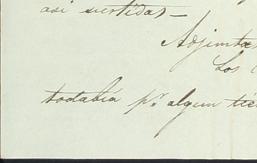 asi vertidas –
Adjunta
Los
todabía pr. algun tié